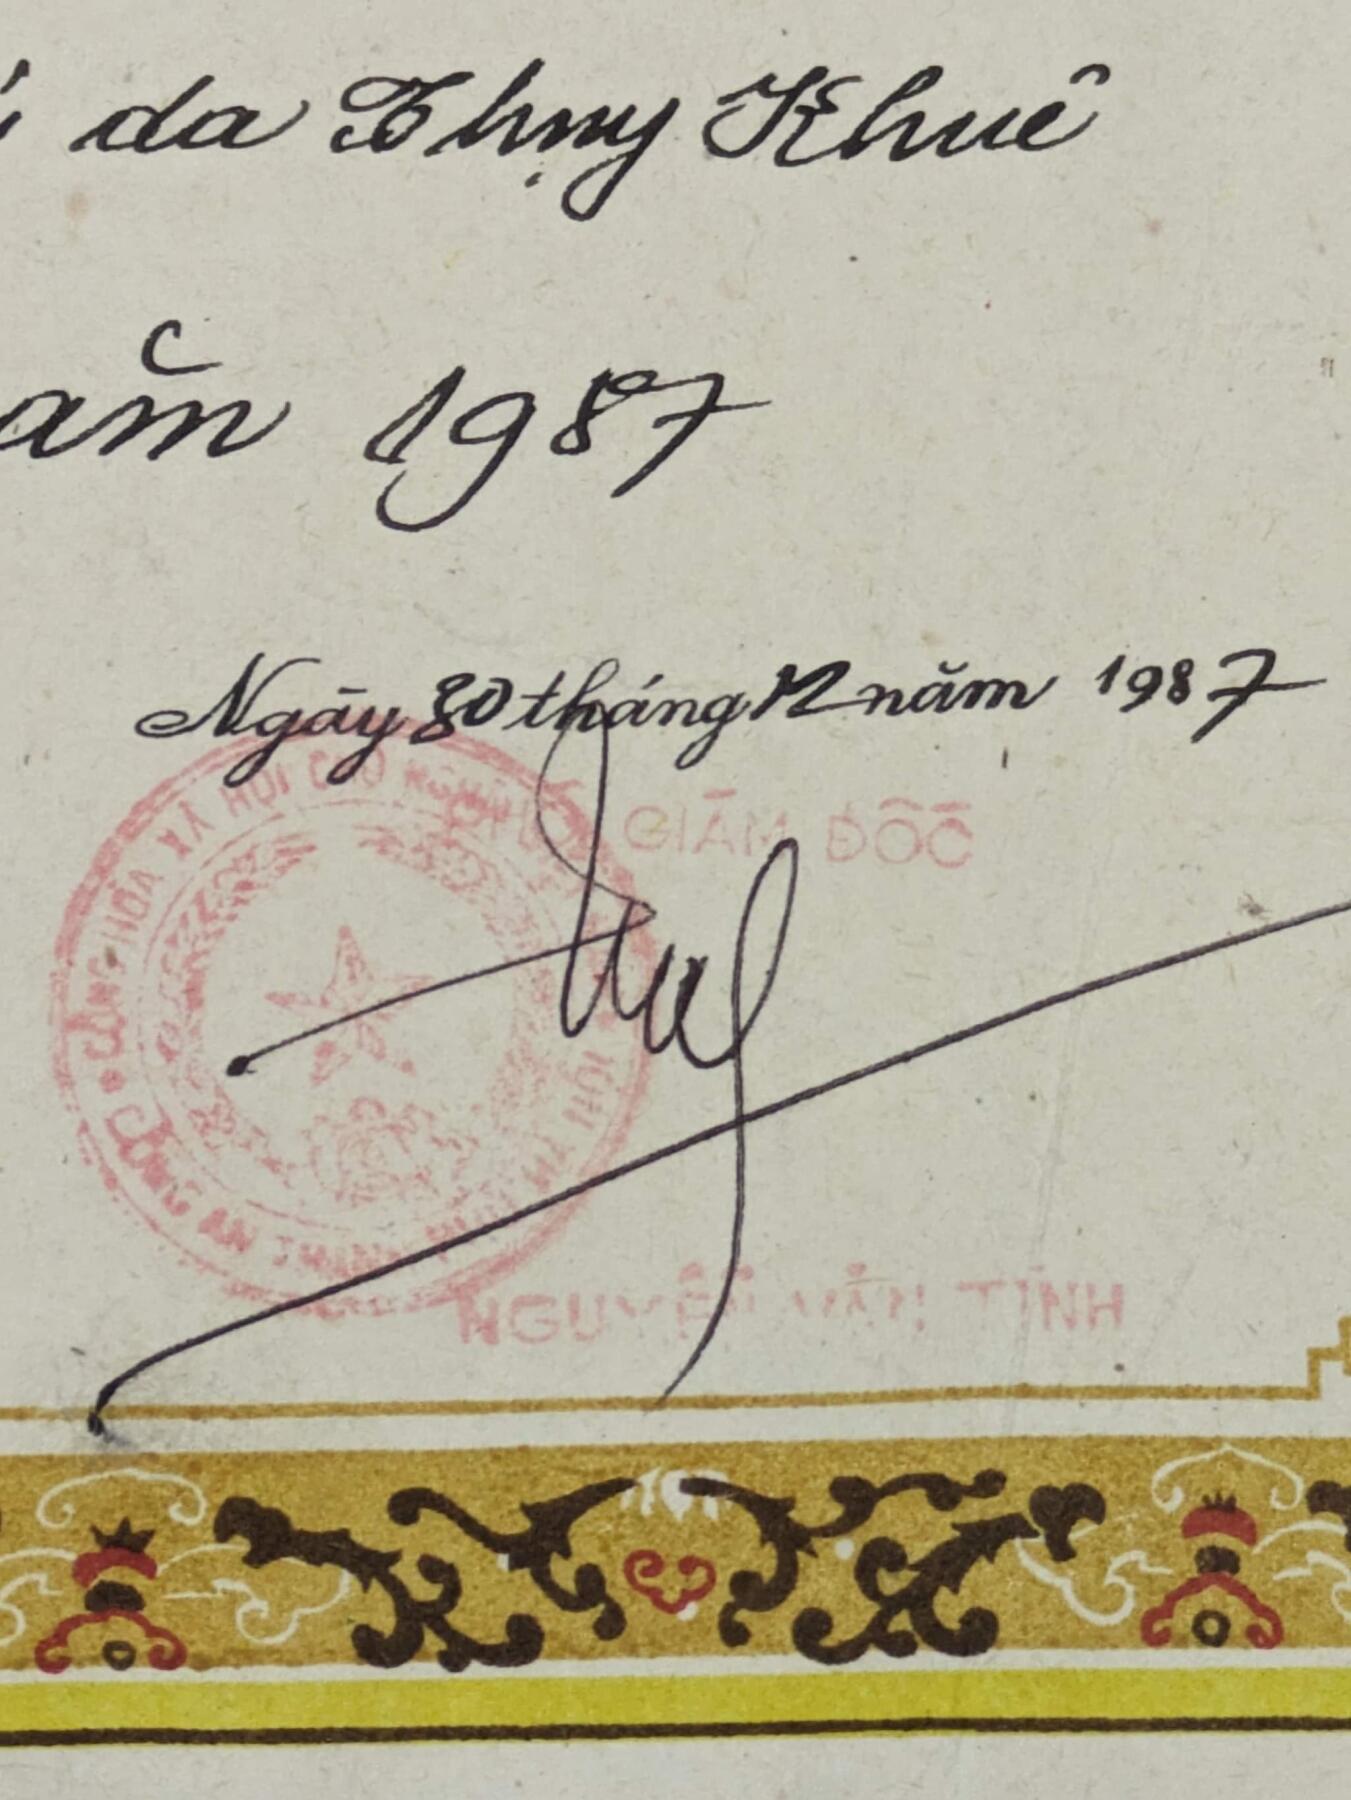 da Thụy Khuê
năm 1987
Ngày 30 tháng 12 năm 1987
PHÓ GIÁM ĐỐC
CỘNG HÒA XÃ HỘI CHỦ NGHĨA
CÔNG AN THÀNH
NGUYỄN VĂN TÍNH